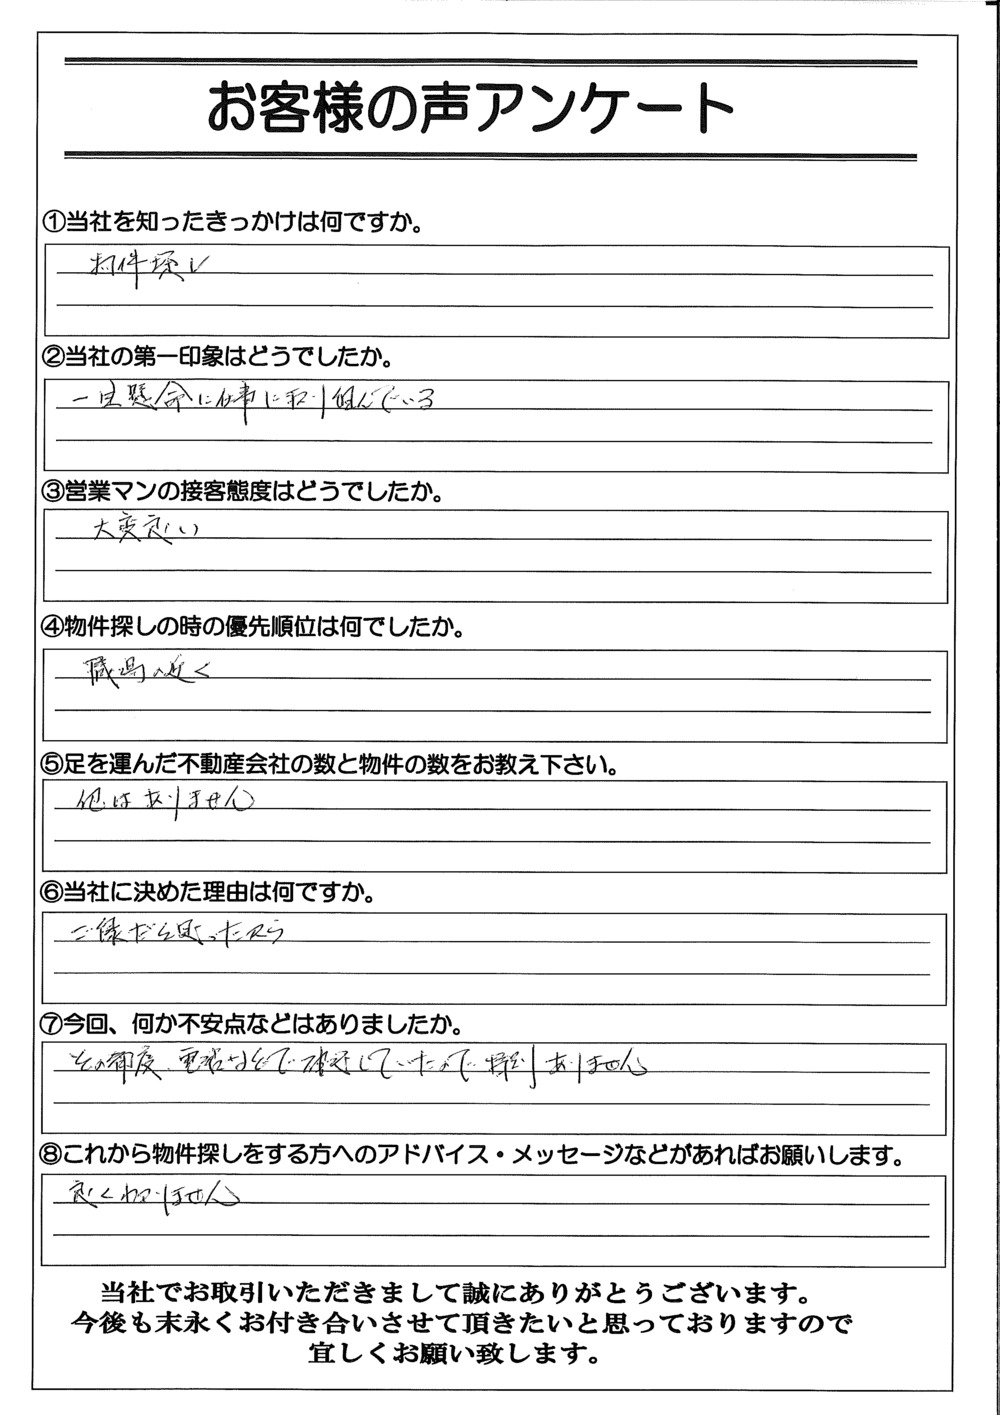 お客様の声アンケート
①当社を知ったきっかけは何ですか。
物件探し
②当社の第一印象はどうでしたか。
一生懸命に仕事に取り組んでいる
③営業マンの接客態度はどうでしたか。
大変良い
④物件探しの時の優先順位は何でしたか。
職場の近く
⑤足を運んだ不動産会社の数と物件の数をお教え下さい。
他はありません
⑥当社に決めた理由は何ですか。
ご縁だと思ったから
⑦今回、何か不安点などはありましたか。
その都度、電話などで確認していたので特別ありません
⑧これから物件探しをする方へのアドバイス・メッセージなどがあればお願いします。
良くわかりません
当社でお取引いただきまして誠にありがとうございます。
今後も末永くお付き合いさせて頂きたいと思っておりますので
宜しくお願い致します。